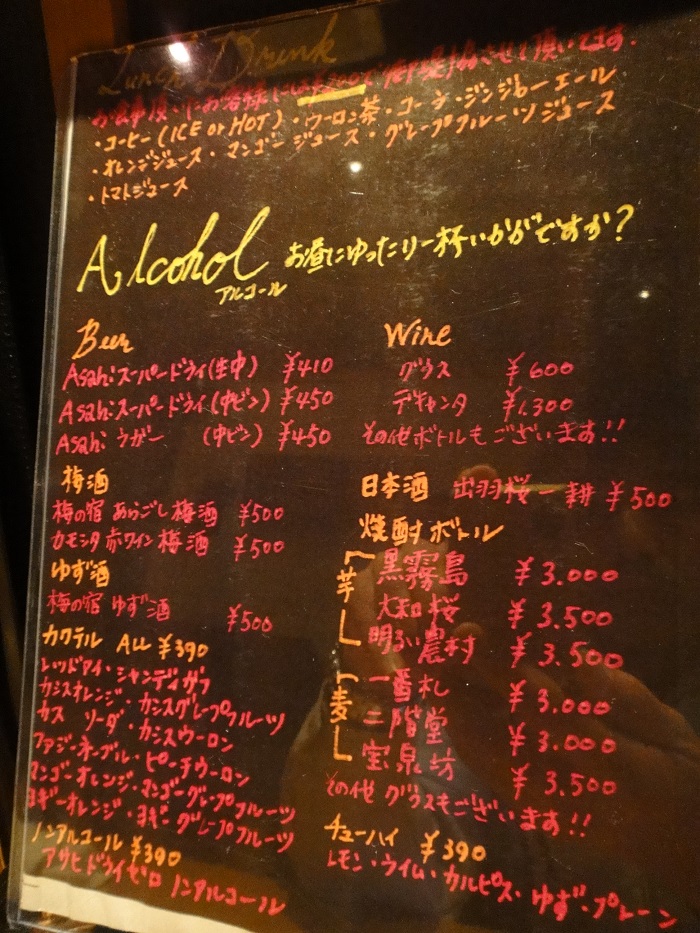 Lunch Drink
お食事頂いたお客様には¥200で御提供させて頂いてます.
・コーヒー(ICE or HOT)・ウーロン茶・コーラ・ジンジャーエール
・オレンジジュース・マンゴージュース・グレープフルーツジュース
・トマトジュース
Alcohol お昼にゆったり一杯いかがですか?
アルコール
Beer
Asahi スーパードライ(生中) ¥410
Asahi スーパードライ(中ビン) ¥450
Asahi ラガー (中ビン) ¥450
梅酒
梅の宿 あらごし梅酒 ¥500
カモシタ赤ワイン梅酒 ¥500
ゆず酒
梅の宿 ゆず酒 ¥500
カクテル ALL ¥390
レッドアイ・シャンディガフ
カシスオレンジ・カシスグレープフルーツ
カス ソーダ・カシスウーロン
ファジーネーブル・ピーチウーロン
マンゴーオレンジ・マンゴーグレープフルーツ
ヨギーオレンジ・ヨギーグレープフルーツ
ノンアルコール ¥390
アサヒドライゼロ ノンアルコール
Wine
グラス ¥600
デキャンタ ¥1.300
その他ボトルもございます!!
日本酒 出羽桜一耕 ¥500
焼酎ボトル
芋
黒霧島 ¥3.000
大和桜 ¥3.500
明るい農村 ¥3.500
麦
一番札 ¥3.000
二階堂 ¥3.000
宝泉坊 ¥3.500
その他 グラスもございます!!
チューハイ ¥390
レモン・ライム・カルピス・ゆず・プレーン